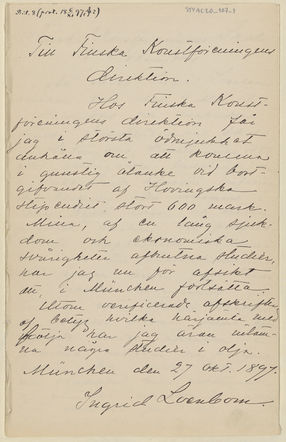 Till Finska Konstföreningens
direktion.
Hos Finska Konst-
föreningens direktion får
jag i största ödmjukhet
anhålla om att komma
i gunstig åtanke vid bort-
gifvandet af Hovingska
stipendiet, stort 600 mark.
Mina, af en lång sjuk-
dom och ekonomiska
svårigheter afbrutna studier,
har jag nu för afsikt
att i München fortsätta.
Utom verificerade afskrifter
af betyg hvilka härjamte med
följa har jag äran inläm-
na några studier i olja.
München den 27 okt. 1897.
Ingrid